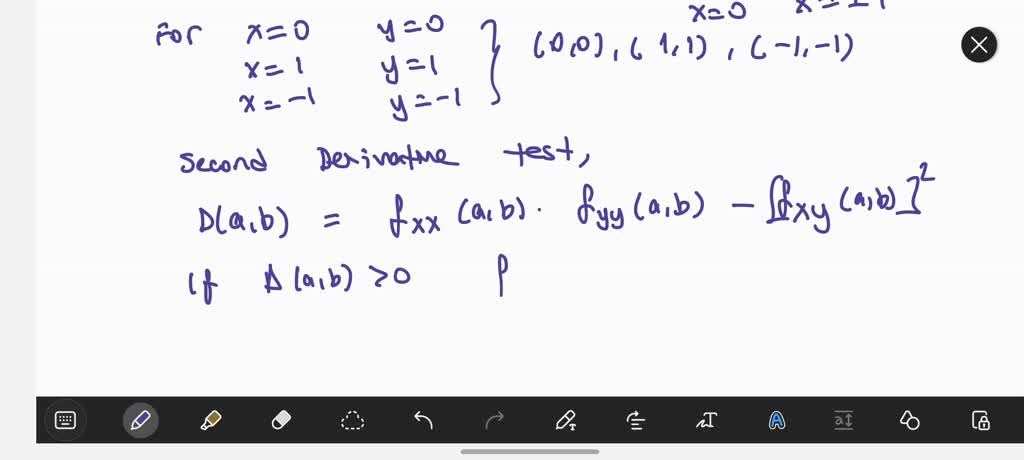 x=0
For x=0 y=0 } (0,0), (1,1), (-1,-1)
x=1 y=1
x=-1 y=-1
Second Derivative test,
D(a,b) = fxx (a,b) · fyy (a,b) - [fxy (a,b)]²
If D(a,b) >0 f